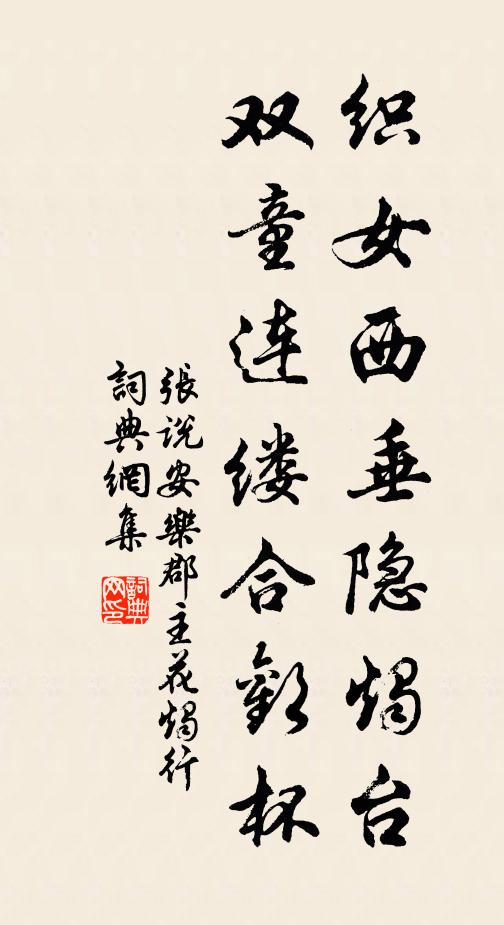 织女西垂隐燭台
双童连缕合歡杯
張说安樂郡主花燭行
詞典網集
詞典网印